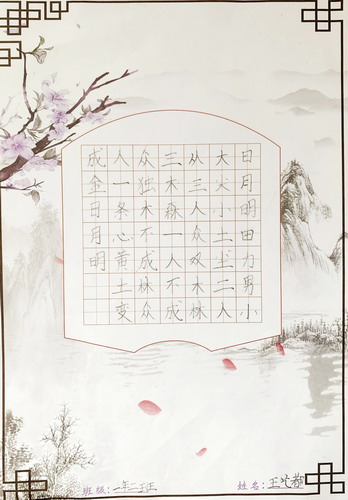 日月明田力男小
大尖小土尘二人
从三人众双木林
三木森一人不成
众独木不成林众
人一条心黄土变
成金日月明
班级:一年二班
姓名:王